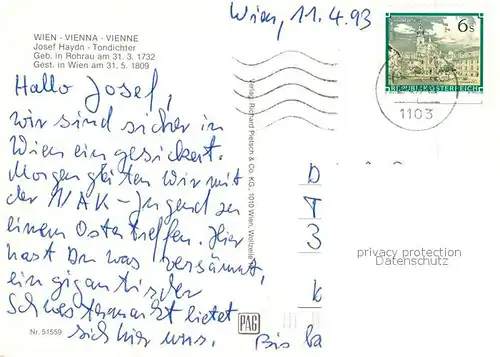 Wien, 11.4.93
WIEN - VIENNA - VIENNE
Josef Haydn - Tondichter
Geb. in Rohrau am 31. 3. 1732
Gest. in Wien am 31. 5. 1809
6s
REPUBLIK ÖSTERREICH
1103
Hallo Josef,
wir sind sicher in
Wien ein gesickert.
Morgen gleiten wir mit
der NAK-Jugend zu
einem Ostertreffen. Hier
hast Du was versäumt,
ein gigantischer
Schwesternmarkt bietet
sich hier uns. Bis ba
D
T
3
k
Verlag Richard Pietsch & Co. KG, 1010 Wien, Wollzeile
privacy protection
Datenschutz
Nr. 51559
PAG